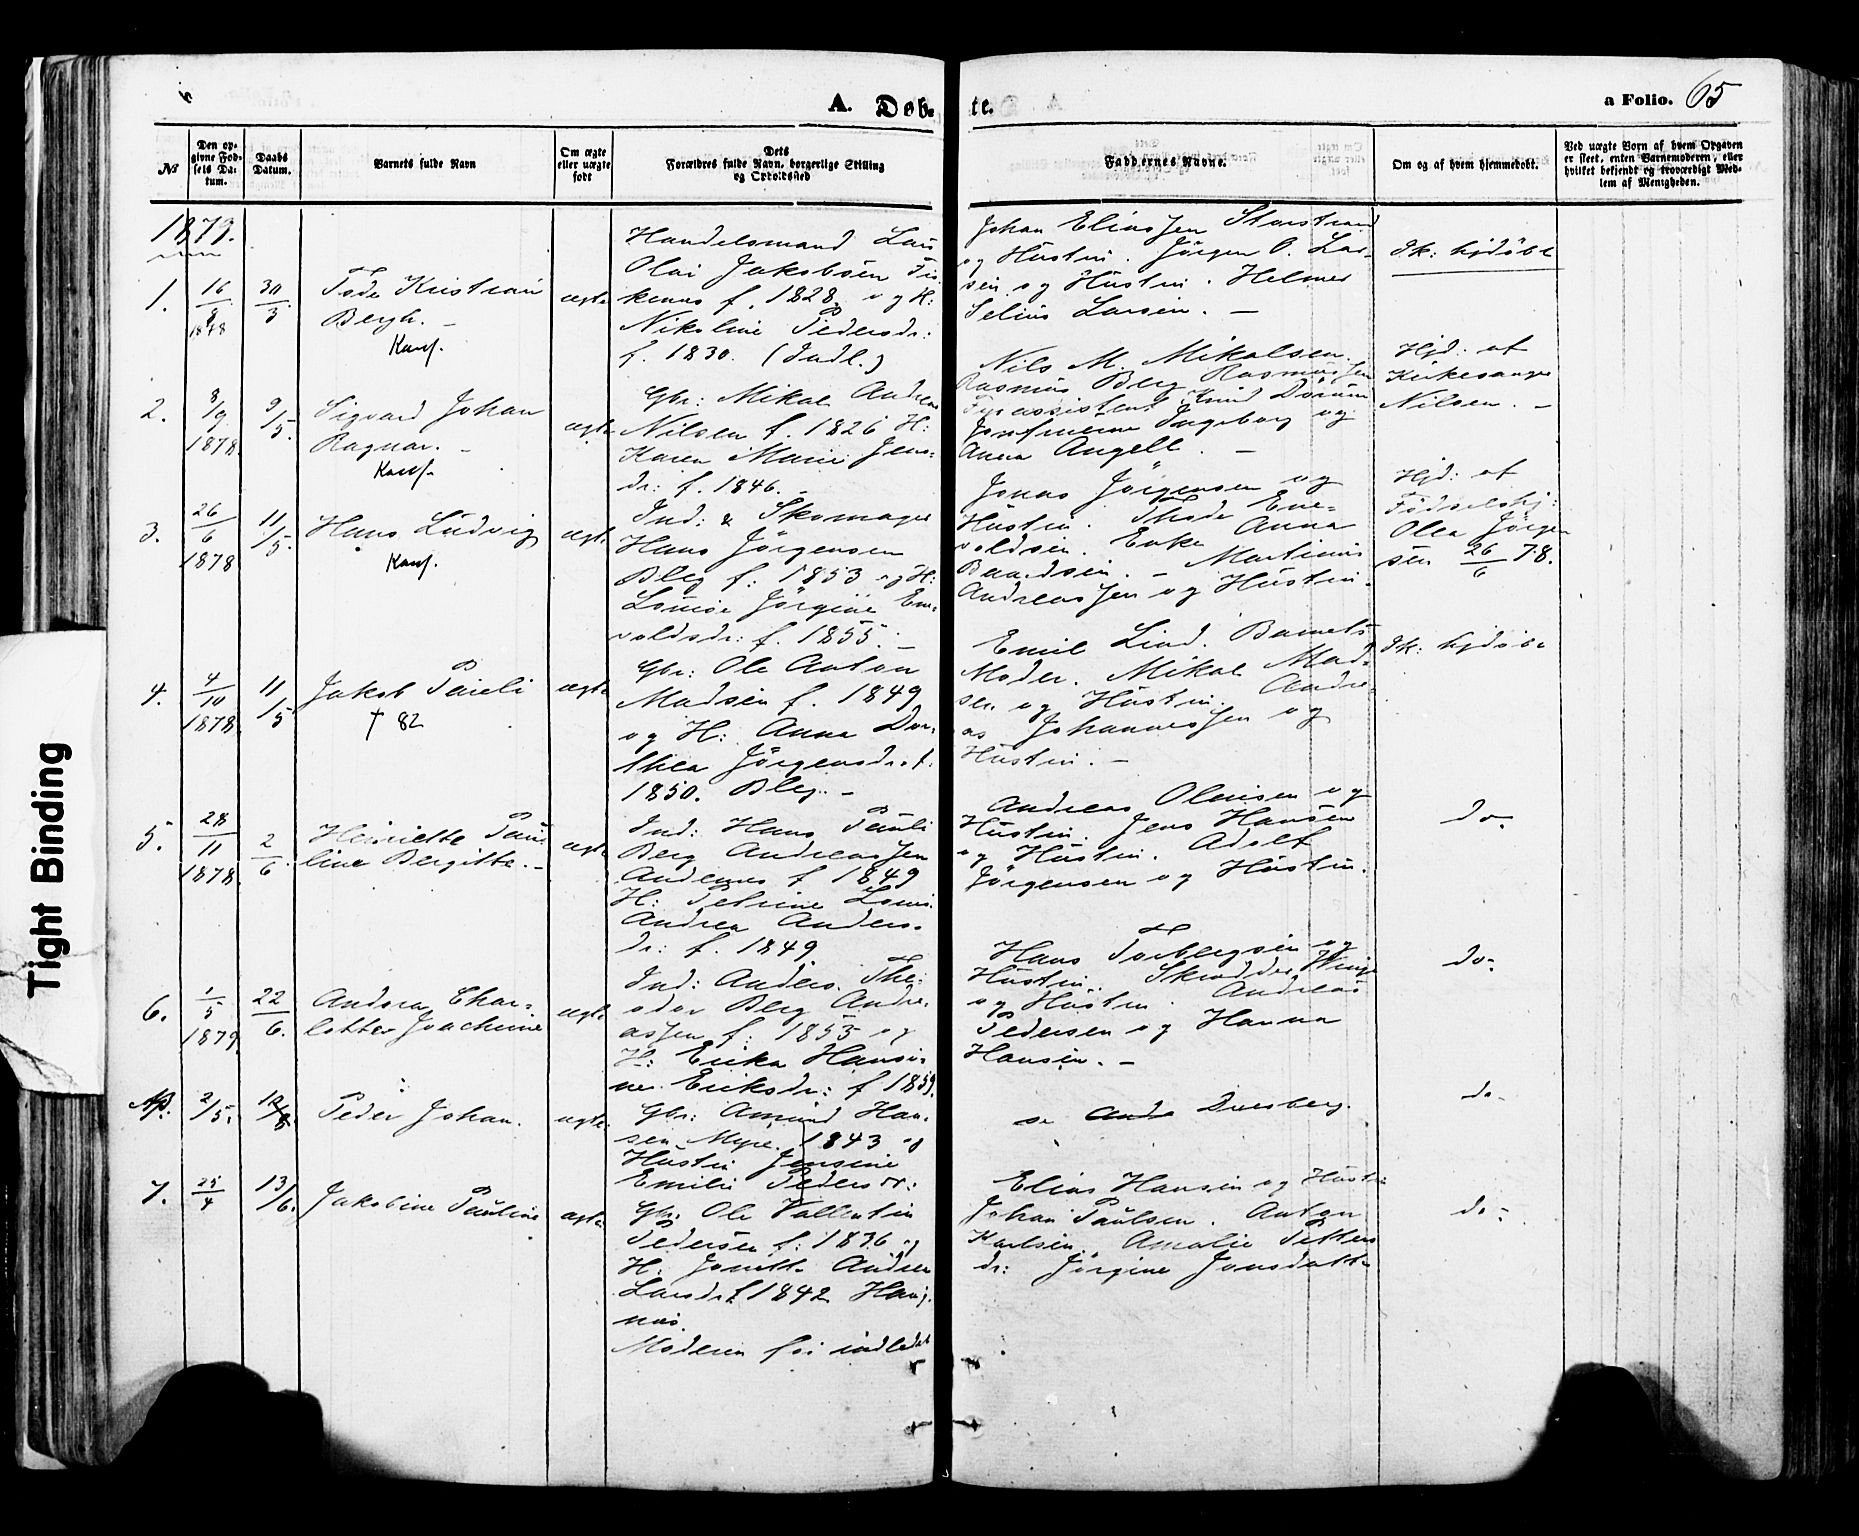 A. Døb-
te.
a Folio. 65
№
Den op-
givne Fød-
sels Da-
tum.
Daabs
Datum.
Barnets fulde Navn
Om ægte
eller uægte
født
Dets
Forældres fulde Navn, borgerlige Stilling
og Opholdssted
Faddernes Navne.
Om og af hvem hjemmedøbt.
Ved uægte Børn af hvem Opgaven
er skeet, enten Barnemoderen, eller
hvilket bekjendt og troværdigt Med-
lem af Menigheden.
1879.
1.
16/8
1878
30/3
Tode Kristian
Bergh. –
Konf.
ægte
Handelsmand Lars
Olai Jakobsen Fis
kenes f. 1828 og H:
Nikoline Pedersdr:
f. 1830. (Indl.)
Johan Eliassen Storstrand
og Hustru. Jörgen O. Lar-
sen og Hustru. Helmer
Selius Larsen. –
Ik: hjdöbt
2.
8/9
1878
9/5.
Sigvard Johan
Ragnar. –
Konf.
ægte
Gbr: Mikal Andreas
Nilsen f. 1826 H:
Karen Marie Jens-
dr: f. 1846. –
Nils M. Mikalsen.
Rasmus Berg Rasmussen
Fyrassistent Knud Dörum
Jomfruerne Ingeborg og
Anna Angell. –
Hjd: af
Kirkesanger
Nilsen. –
3.
26/6
1878
11/5.
Hans Ludvig
Konf.
ægte
Ind: & Skomager
Hans Jörgensen
Bleg f: 1853 og H:
Lovise Jörgine Ene-
voldsdr: f. 1855. –
Jonas Jörgensen og
Hustru. Thode Ene-
voldsen. Enke Anna
Baardsen. – Martinus
Andreassen og Hustru.
Hjd: af
Födselshj:
Olea Jörgen
sen 26/6 78.
4.
4/10
1878
11/5
Jakob Pauli
† 82
ægte
Gbr: Ole Anton
Madsen f. 1849
og H: Anna Dor-
thea Jörgensdr. f.
1850. Bleg. –
Emil Lind. Barnets
Moder. Mikal Mad-
sen og Hustru. Andre-
as Johannessen og
Hustru. –
Ik: hjdöbt
5.
28/11
1878
2/6.
Henriette Pau
line Bergitte. –
ægte
Ind: Hans Pauli
Berg Andreassen
Andenes f 1849
H: Petrine Lovi.
Andrea Anders-
dr: f. 1849.
Andreas Olausen og
Hustru. Jens Hansen
og Hustru. Adolf
Jörgensen og Hustru.
do-
6.
1/5
1879
22/6.
Andrea Char-
lotte Joachime
ægte
Ind: Anders The-
odor Berg Andre-
assen f: 1853 og
H: Erika Hansi-
ne Eriksdr: f 1859.
Hans Torbergsen og
Hustru. Skrædder Winje
og Hustru. Andreas
Pedersen og Hanna
Hansen. –
do-
2/5.
Peder Johan.
ægte
Gbr: Amund Han-
sen Myre. 1843 og
Hustru Jensine
Emilie Pedersdr:
se Dversberg.
do-
7.
25/4
13/6.
Jakobine Pauline
ægte
Gbr: Ole Vallentin
Pedersen f: 1836 og
H: Andrea
Larsdr f 1842 Haug-
næs.
Moderen för indledet
Elias Hansen og Hustru
Johan Paulsen. Anton
Karlsen. Amalie Petters
dr: Jörgine Jonsdatter
do-
Tight Binding